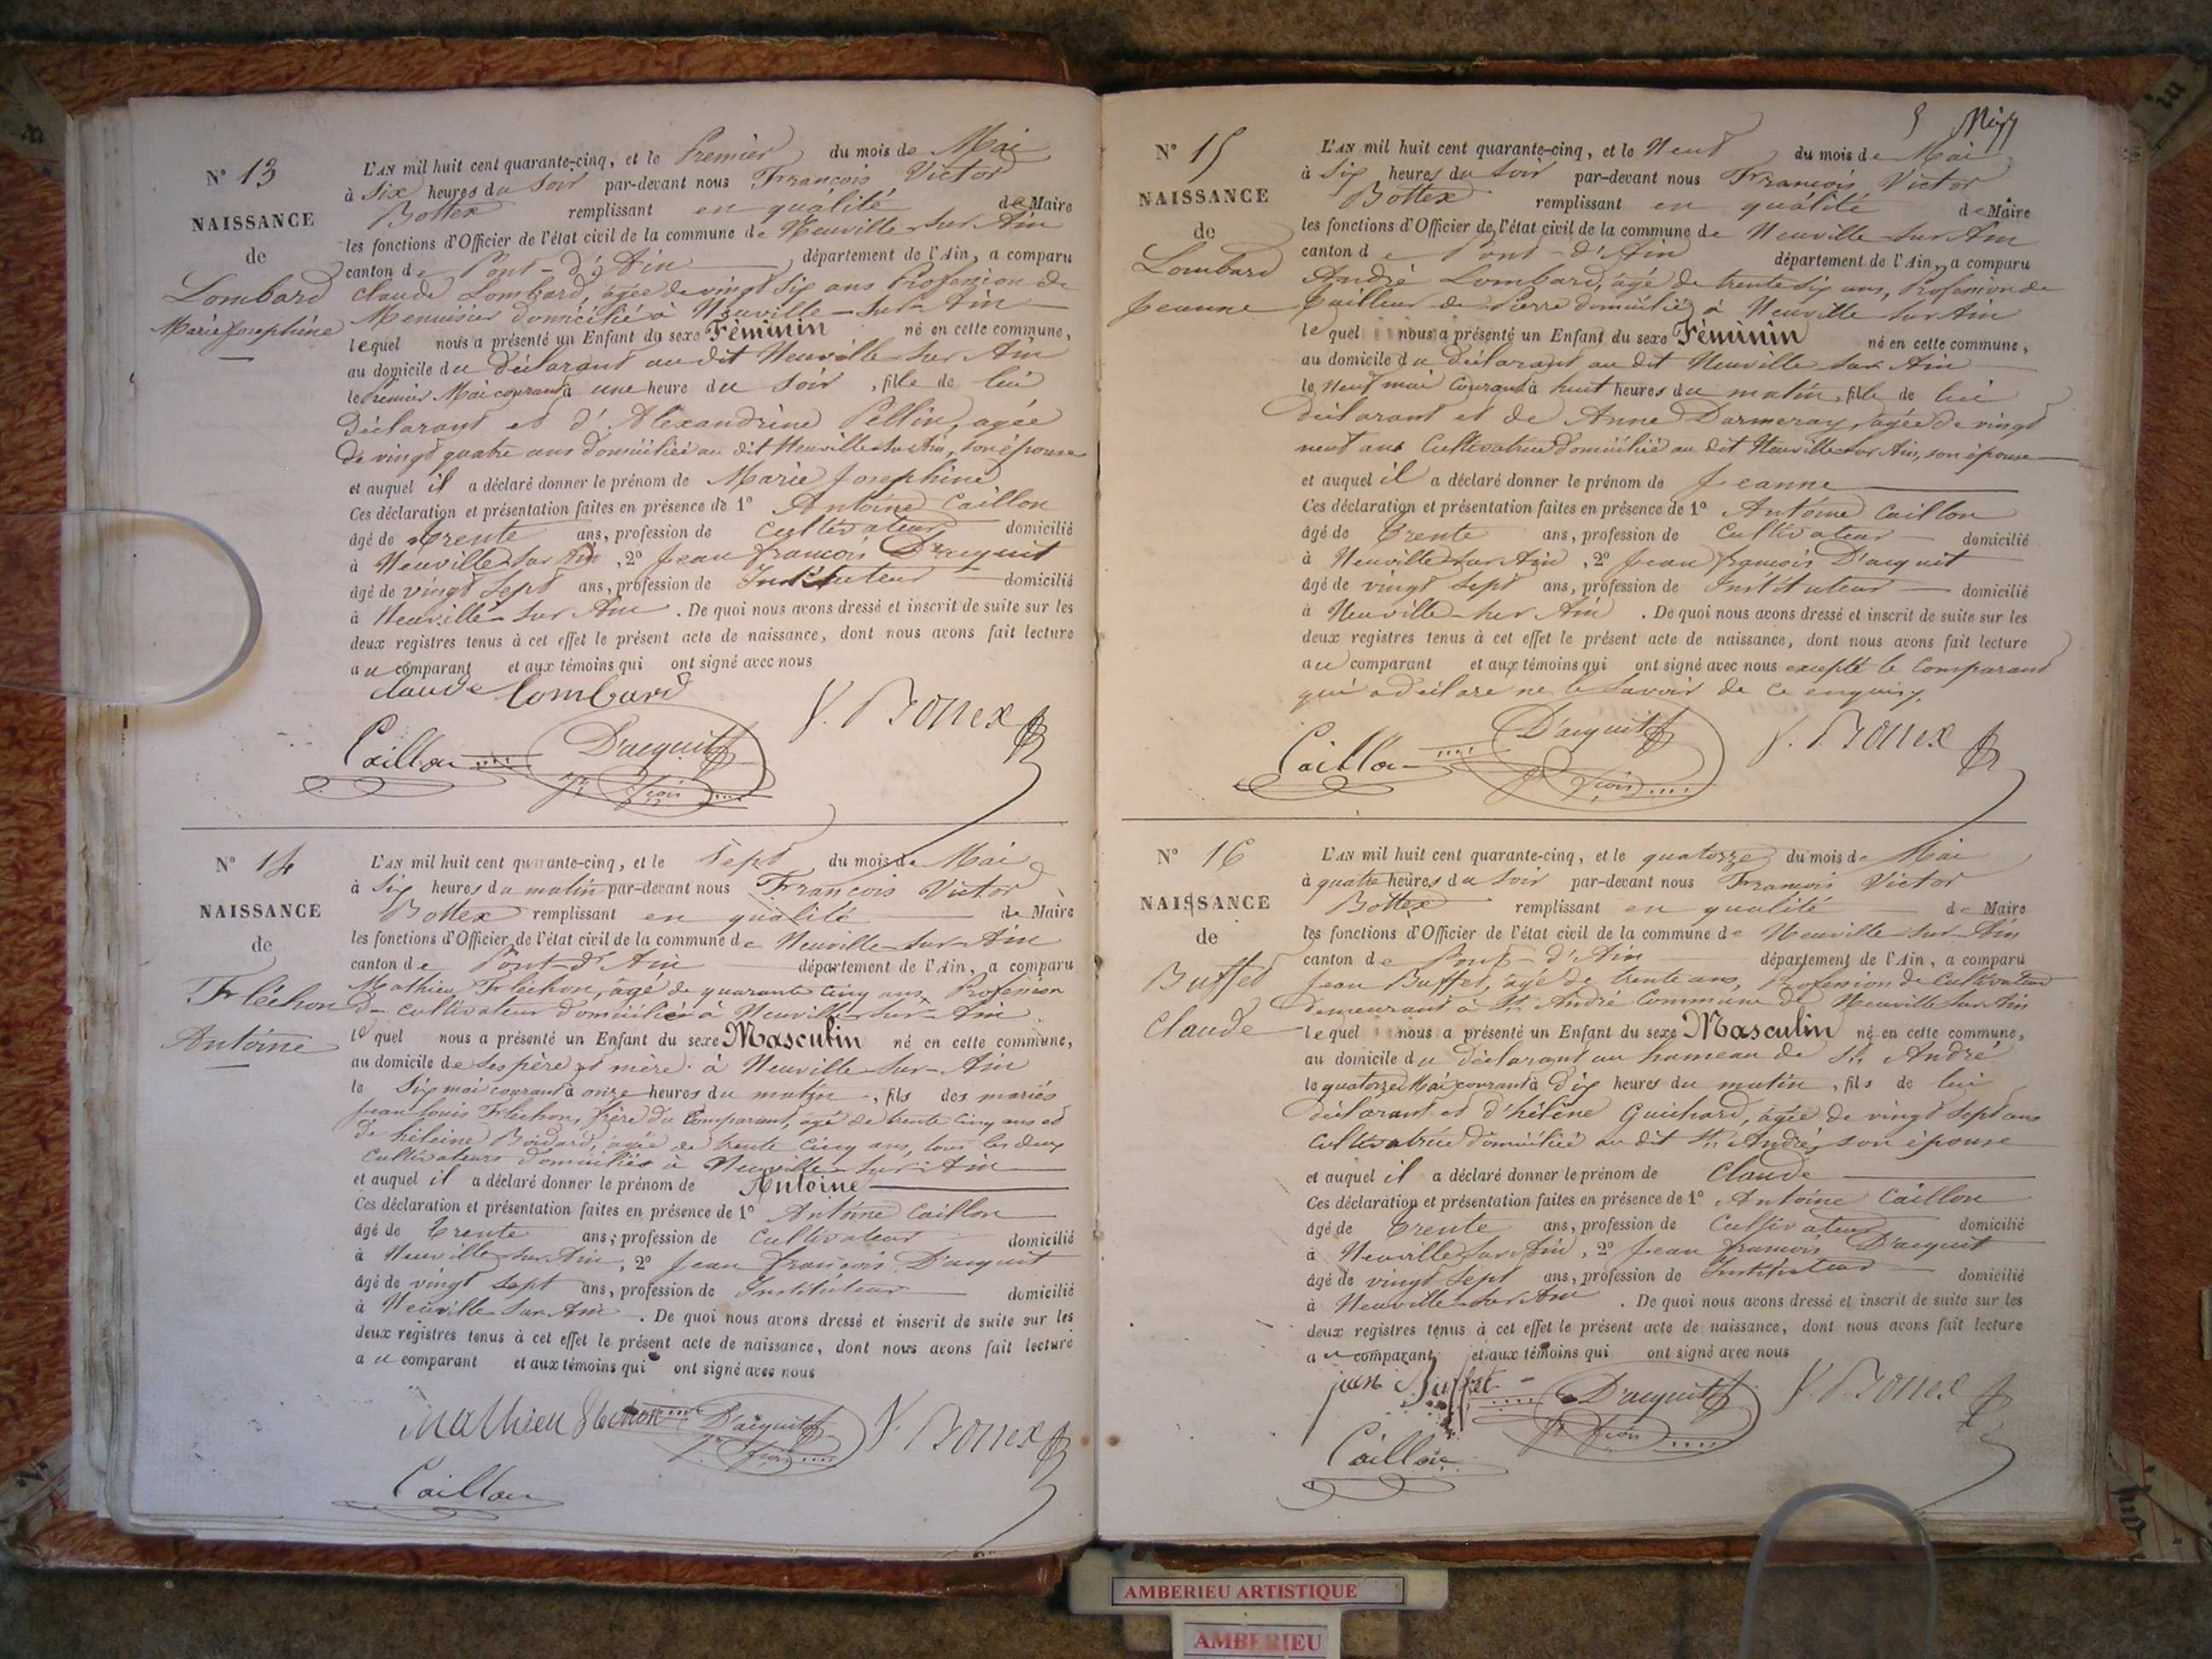 N° 13
NAISSANCE
de
Lombard
Marie Josephine
L'AN mil huit cent quarante-cinq, et le Premier du mois de Mai
à Six heures du Soir par-devant nous François Victor
Bottex remplissant en qualité de Maire
les fonctions d'Officier de l'état civil de la commune de Neuville sur Ain
canton de Pont-d'Ain département de l'Ain, a comparu
Claude Lombard, agée de vingt Six ans Profession de
Menuisier domicilié à Neuville-sur-Ain
lequel nous a présenté un Enfant du sexe Féminin né en cette commune,
au domicile du déclarant au dit Neuville sur Ain
le Premier Mai courant à une heure du Soir, fille de lui
déclarant et d'Alexandrine Pellin, agée
de vingt quatre ans domiciliée au dit Neuville sur Ain, son épouse
et auquel il a déclaré donner le prénom de Marie Josephine
Ces déclaration et présentation faites en présence de 1° Antoine Caillon
âgé de trente ans, profession de cultivateur domicilié
à Neuville sur Ain, 2° Jean François D'acquit
âgé de vingt Sept ans, profession de Instituteur domicilié
à Neuville sur Ain. De quoi nous avons dressé et inscrit de suite sur les
deux registres tenus à cet effet le présent acte de naissance, dont nous avons fait lecture
au comparant et aux témoins qui ont signé avec nous
Claude Lombard
V. Bottex
Caillon D'acquit
Jn fcois
N° 14
NAISSANCE
de
Fléchon
Antoine
L'AN mil huit cent quarante-cinq, et le Sept du mois de Mai
à Six heures du matin par-devant nous François Victor
Bottex remplissant en qualité de Maire
les fonctions d'Officier de l'état civil de la commune de Neuville sur Ain
canton de Pont-d'Ain département de l'Ain, a comparu
Mathieu Fléchon, agé de quarante cinq ans, Profession
de cultivateur domicilié à Neuville-sur-Ain
lequel nous a présenté un Enfant du sexe Masculin né en cette commune,
au domicile de ses père et mère à Neuville-sur-Ain
le Six mai courant à onze heures du matin, fils des mariés
Jean Louis Fléchon, frère du Comparant, agé de trente cinq ans et
de héleine Boidard, agée de trente cinq ans, tous les deux
cultivateurs domiciliés à Neuville sur Ain
et auquel il a déclaré donner le prénom de Antoine
Ces déclaration et présentation faites en présence de 1° Antoine Caillon
âgé de trente ans; profession de Cultivateur domicilié
à Neuville sur Ain, 2° Jean François D'acquit
âgé de vingt Sept ans, profession de Instituteur domicilié
à Neuville Sur Ain. De quoi nous avons dressé et inscrit de suite sur les
deux registres tenus à cet effet le présent acte de naissance, dont nous avons fait lecture
au comparant et aux témoins qui ont signé avec nous
Mathieu flechon D'acquit V. Bottex
Jn fcois
Caillon
N° 15
NAISSANCE
de
Lombard
Jeanne
L'AN mil huit cent quarante-cinq, et le Neuf du mois de Mai
à Six heures du Soir par-devant nous François Victor
Bottex remplissant en qualité de Maire
les fonctions d'Officier de l'état civil de la commune de Neuville sur Ain
canton de Pont-d'Ain département de l'Ain, a comparu
André Lombard, agé de trente Six ans, Profession de
Tailleur de Pierre domicilié à Neuville sur Ain
lequel nous a présenté un Enfant du sexe Féminin né en cette commune,
au domicile du déclarant au dit Neuville sur Ain
le Neuf mai courant à huit heures du matin, fille de lui
déclarant et de Anne Darmeray, agée de vingt
neuf ans Cultivatrice domiciliée au dit Neuville sur Ain, son épouse
et auquel il a déclaré donner le prénom de Jeanne
Ces déclaration et présentation faites en présence de 1° Antoine Caillon
âgé de trente ans, profession de Cultivateur domicilié
à Neuville sur Ain, 2° Jean françois D'acquit
âgé de vingt Sept ans, profession de Instituteur domicilié
à Neuville sur Ain. De quoi nous avons dressé et inscrit de suite sur les
deux registres tenus à cet effet le présent acte de naissance, dont nous avons fait lecture
au comparant et aux témoins qui ont signé avec nous excepté le Comparant
qui a déclaré ne le savoir de ce enquis
D'acquit V. Bottex
Caillon Jn fcois
N° 16
NAISSANCE
de
Buffet
Claude
L'AN mil huit cent quarante-cinq, et le quatorze du mois de Mai
à quatre heures du Soir par-devant nous François Victor
Bottex remplissant en qualité de Maire
les fonctions d'Officier de l'état civil de la commune de Neuville sur Ain
canton de Pont-d'Ain département de l'Ain, a comparu
Jean Buffet, agé de trente ans, Profession de Cultivateur
demeurant à St André Commune de Neuville sur Ain
lequel nous a présenté un Enfant du sexe Masculin né en cette commune,
au domicile du déclarant au hameau de St André
le quatorze Mai courant à dix heures du matin, fils de lui
déclarant et d'hélène Guichard, agée de vingt sept ans
cultivatrice domiciliée au dit St André, son épouse
et auquel il a déclaré donner le prénom de Claude
Ces déclaration et présentation faites en présence de 1° Antoine Caillon
âgé de trente ans, profession de Cultivateur domicilié
à Neuville sur Ain, 2° Jean françois D'acquit
âgé de vingt Sept ans, profession de Instituteur domicilié
à Neuville sur Ain. De quoi nous avons dressé et inscrit de suite sur les
deux registres tenus à cet effet le présent acte de naissance, dont nous avons fait lecture
au comparant et aux témoins qui ont signé avec nous
jean Buffet D'acquit V. Bottex
Jn fcois
Caillon
AMBERIEU ARTISTIQUE
AMBERIEU